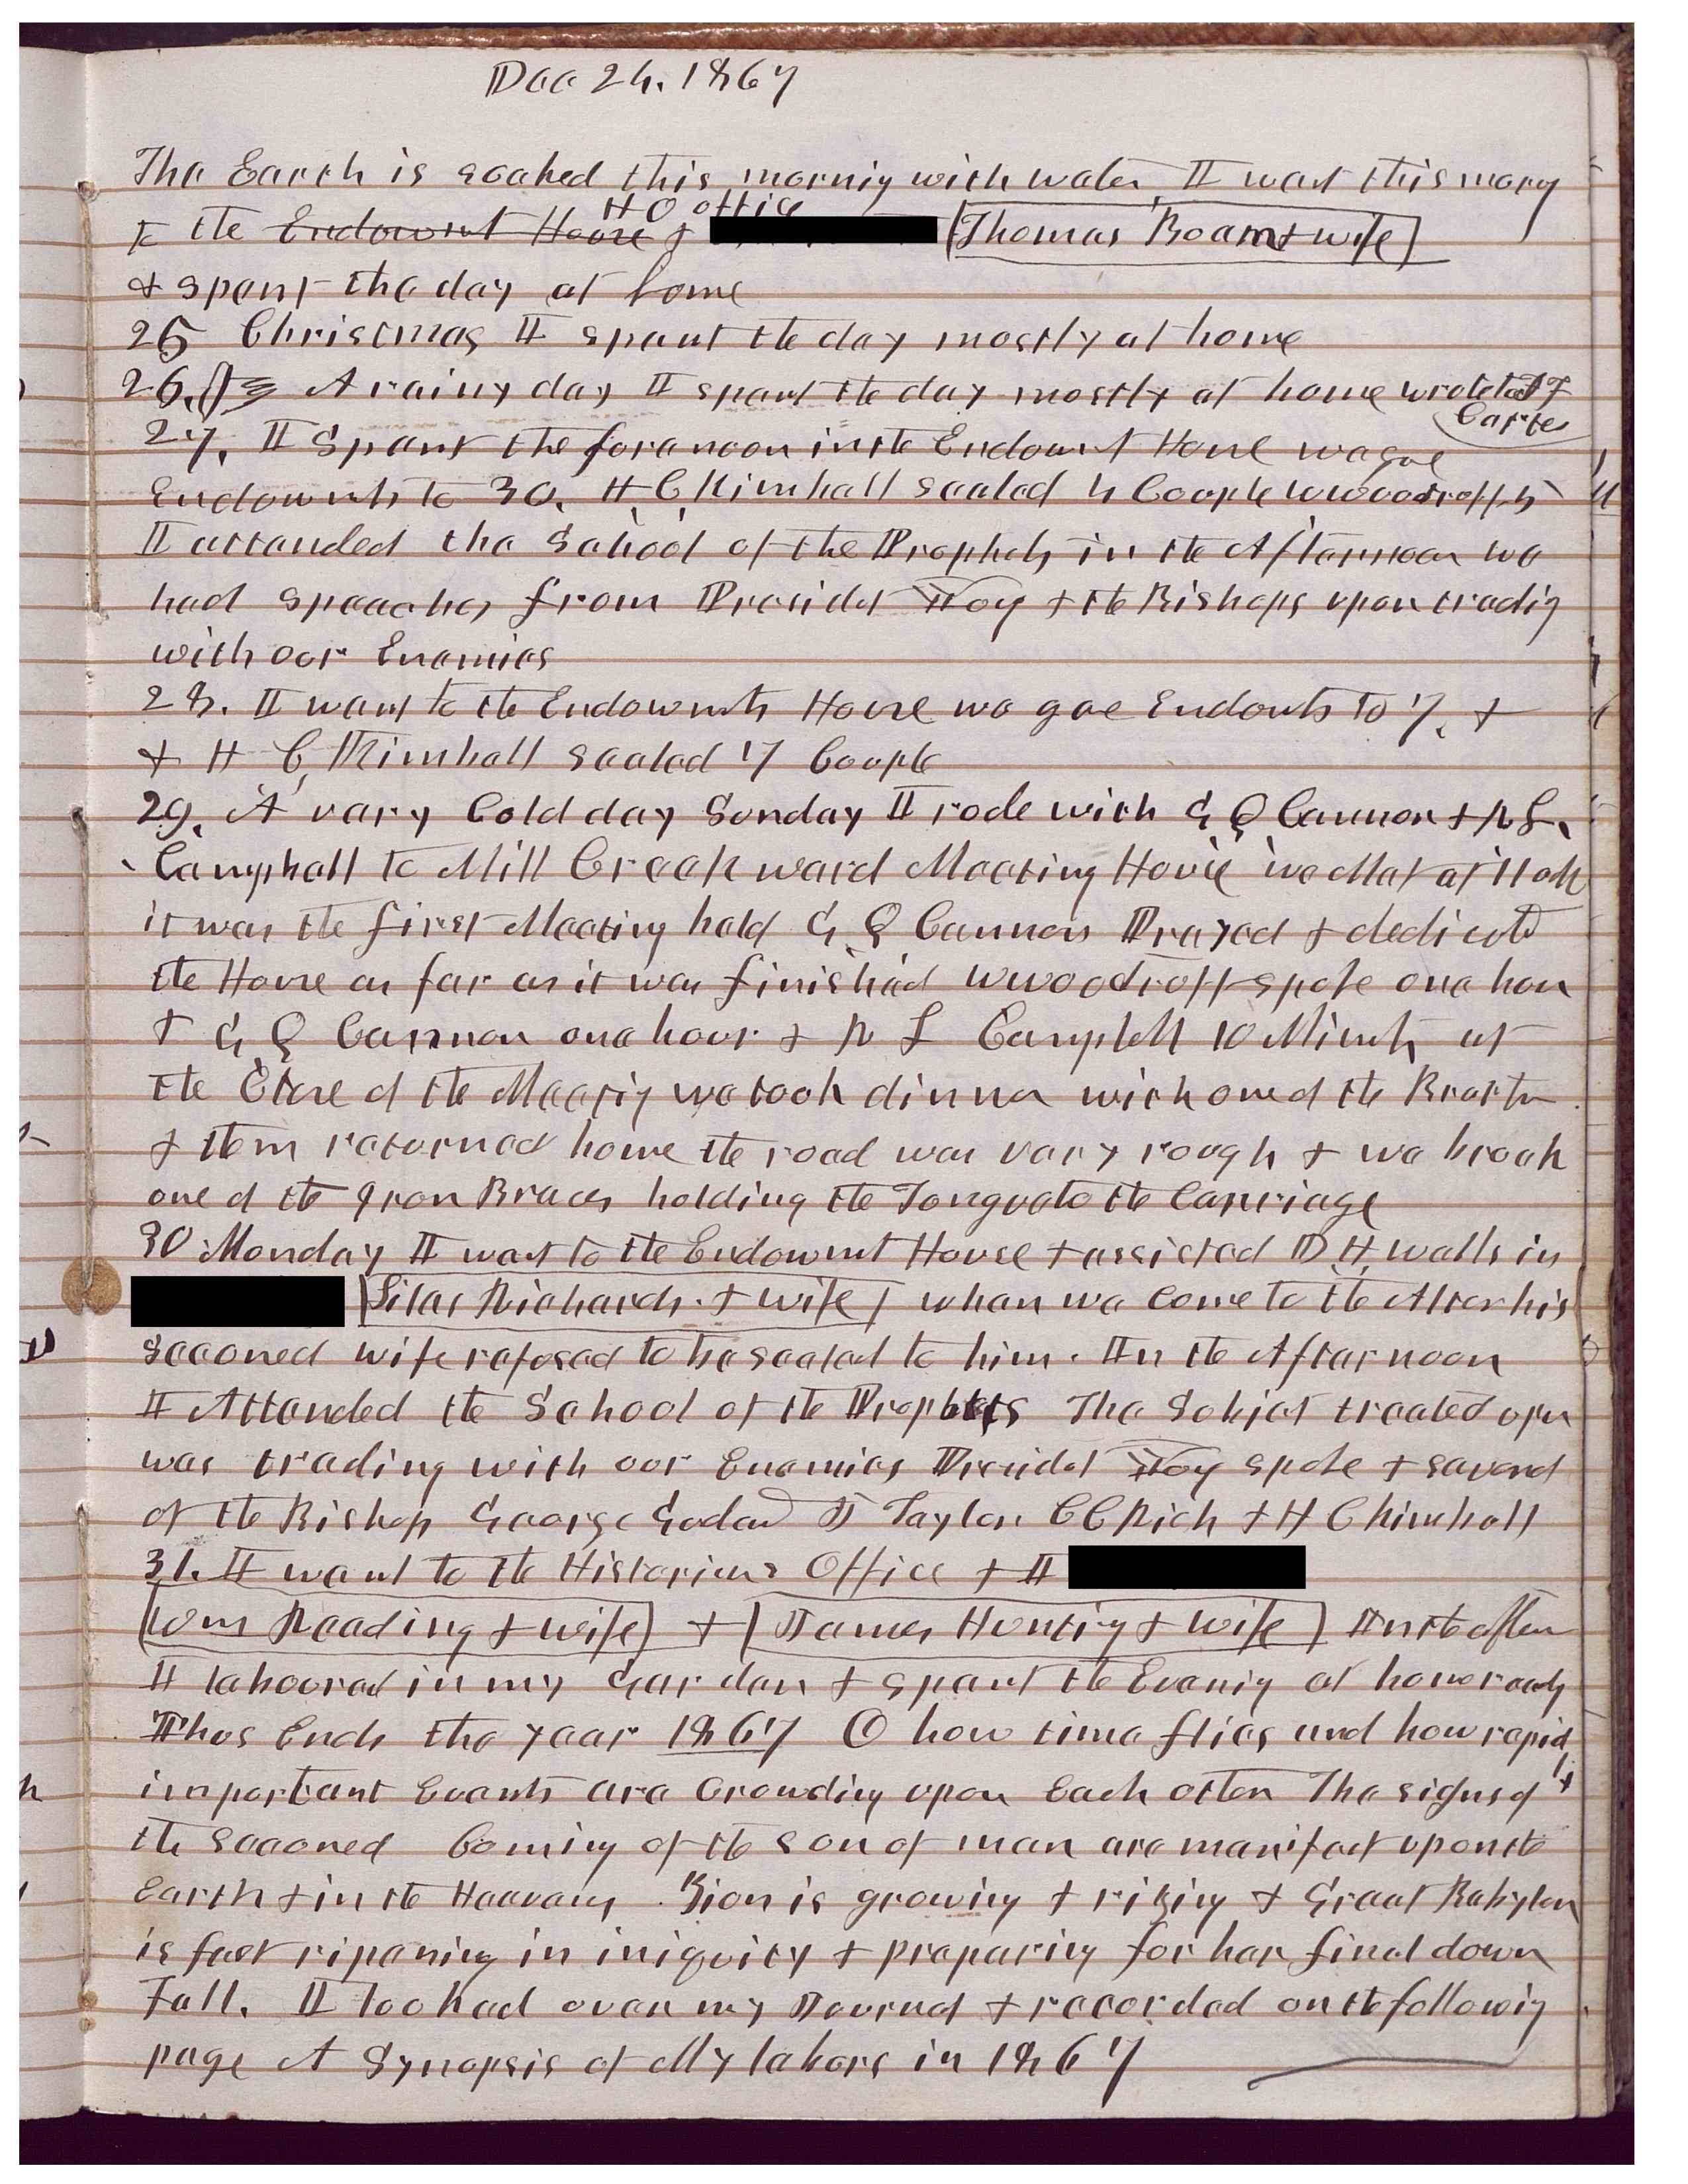 Dec 24. 1867
The Earth is soaked this mornig with water I went this morng
H O office
to the Endowmt House & [Thomas Boam & wife]
& spent the day at home
25 Christmas I spent the day mostly at home
26. A rainy day I spent the day mostly at home wrote to
Carter
27. I Spent the forenoon in the Endowmt House we gave
Endowmts to 30. H. C. Kimball sealed 4 Couple W Woodruff 5
I attended the School of the Prophets in the Afternoon we
had speeches from Presidet Yog & the Bishops upon tradig
with our Enemies
28. I went to the Endowmts House we gave Endowts to 7. &
& H C, Kimball sealed 7 Couple
29. A very Cold day Sunday I rode with G Q Cannon & R L.
Campbell to Mill Creek ward Meeting House we Met at 11 ock
it was the first Meeting held G Q Cannon Prayed & dedicatd
the House as far as it was finished W Woodruff spoke one hour
& G Q Cannon one hour & R L Campbell 10 Minuts at
the Close of the Meetig we took dinner with one of the Brethn
& them returned home the road was very rough & we broak
one of the Iron Braces holding the Tongue to the Carriage
30 Monday I went to the Endowmt House & assisted D H, Wells in
[Silas Richards. & wife] when we Come to the Alter his
seconed wife refused to be sealed to him. In the Afternoon
I Attended the School of the Prophets The Subject treated upon
was trading with our Enemies Presidet Yog spoke & several
of the Bishops George Godard J Taylor. C C Rich & H C Kimball
31. I went to the Historians Office & I
[Wm Reading & wife] + [James Huntig & wife] In the aftern
I laboured in my Garden & spent the Evenig at home readg
Thus Ends the year 1867 O how time flies and how rapid
ly
important Events are Crowding upon Each other The signs of
the seconed Coming of the son of man are manifest upon the
Earth & in the Heavens. Zion is growing & rising & Great Babylon
is fast ripening in iniquity & preparing for her final down
Fall. I looked over my Journal & recorded on the followig
page A Synopsis of My labors in 1867